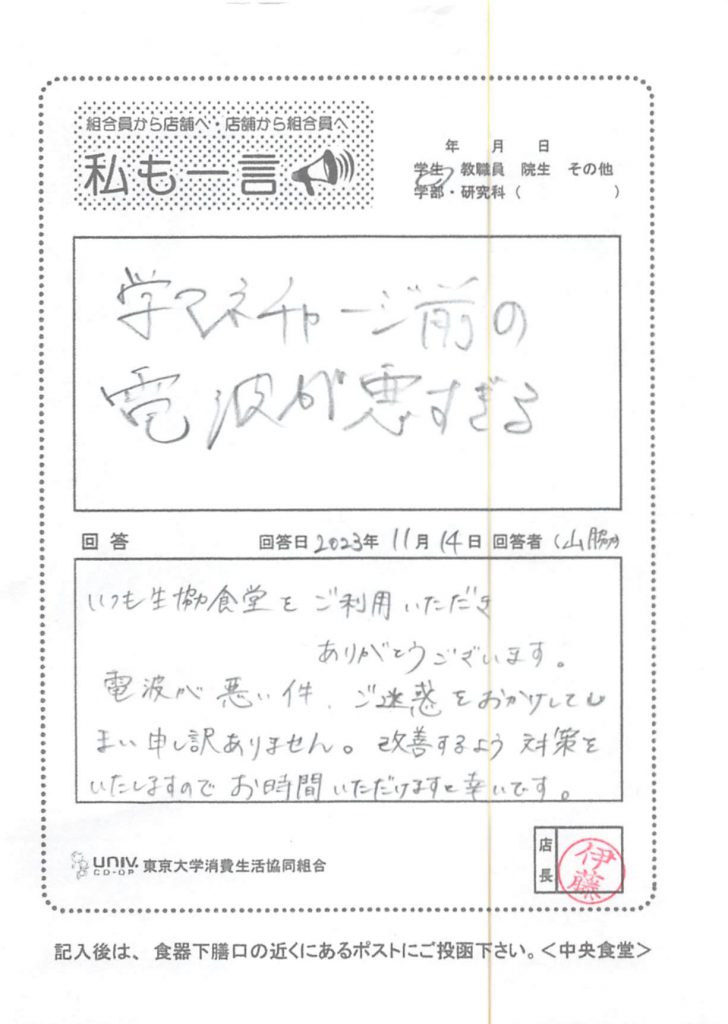 組合員から店舗へ・店舗から組合員へ
私も一言
年 月 日
学生・教職員 院生 その他
学部・研究科（ ）
学マネチャージ前の
電波が悪すぎる
回答 回答日 2023年 11月 14日 回答者（山脇）
いつも生協食堂をご利用いただき
ありがとうございます。
電波が悪い件、ご迷惑をおかけしてし
まい申し訳ありません。改善するよう対策を
いたしますのでお時間いただけますと幸いです。
店長 伊藤
UNIV. CO-OP 東京大学消費生活協同組合
記入後は、食器下膳口の近くにあるポストにご投函下さい。＜中央食堂＞